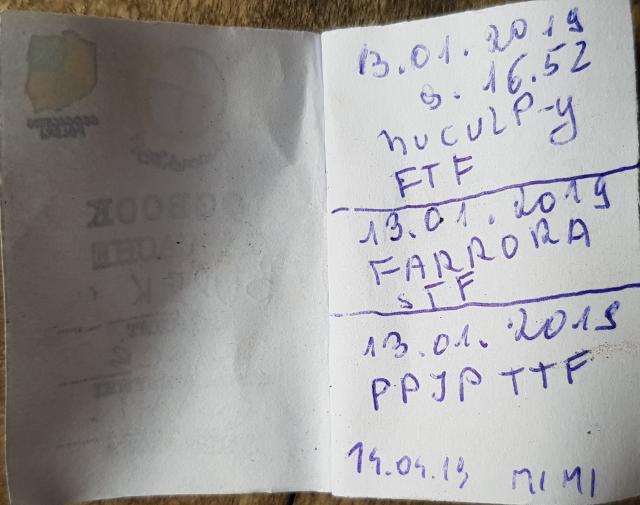 13.01.2019
g. 16.52
hucuł P-y
FTF
13.01.2019
FARRORA
STF
13.01.2019
PPJP TTF
14.04.19 MIMI
LOGBOOK